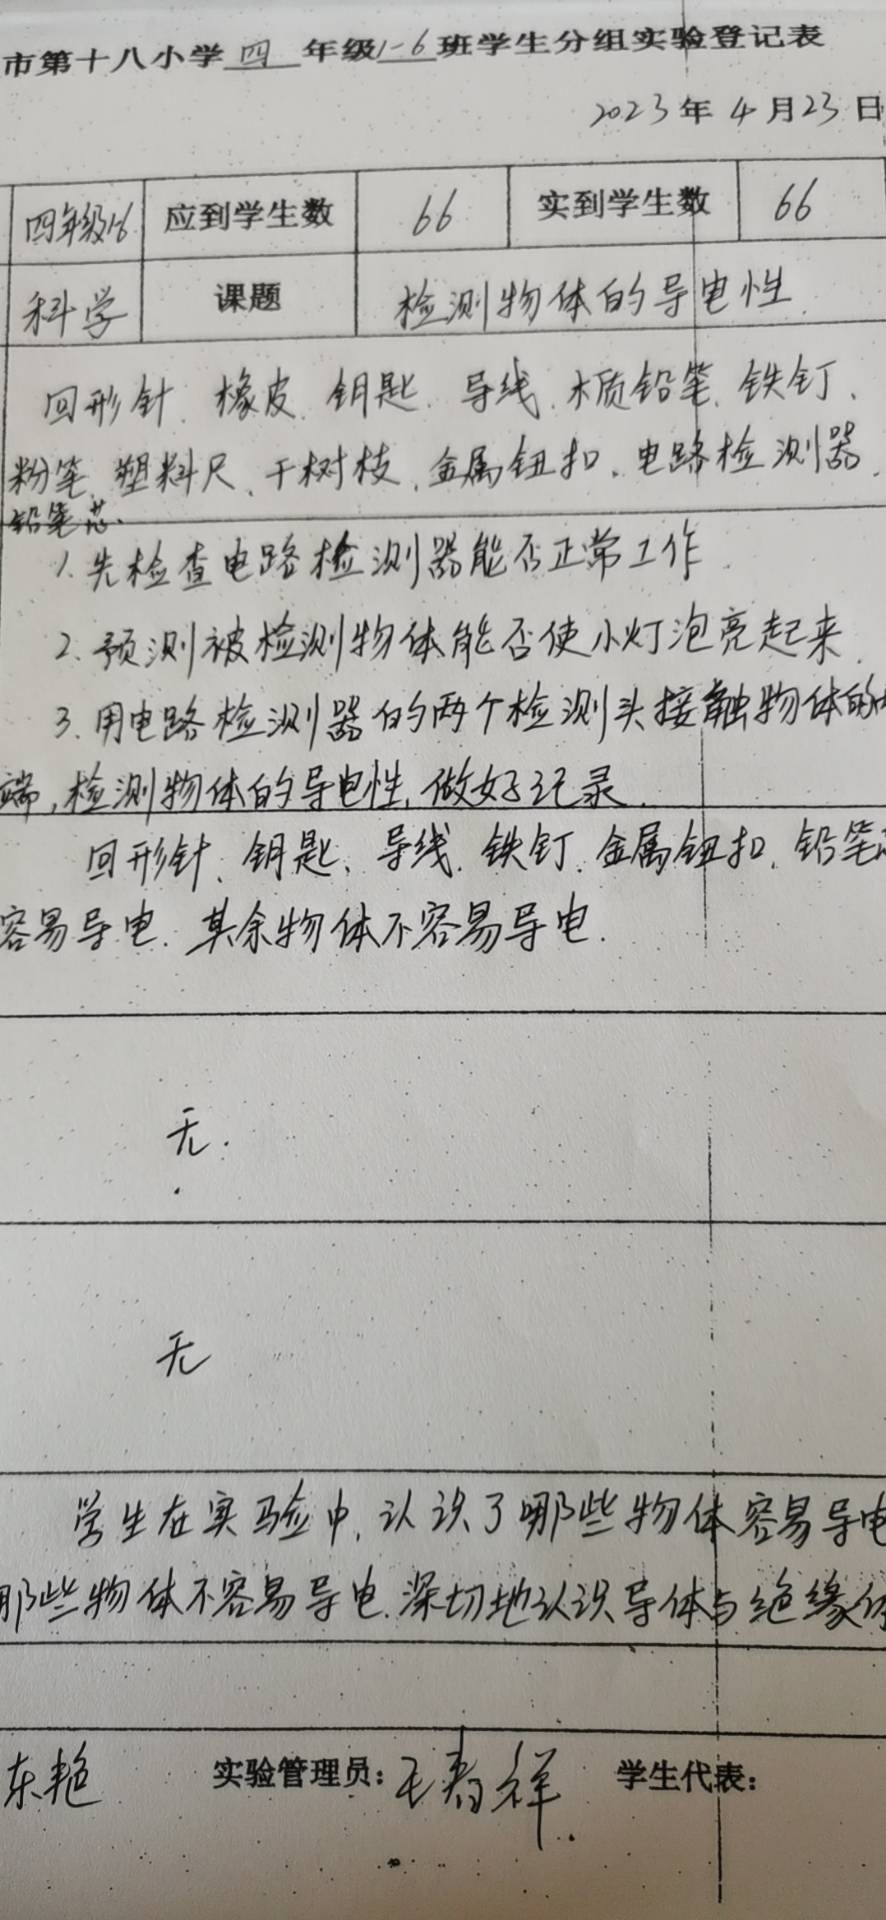 市第十八小学四年级1-6班学生分组实验登记表
2023年4月23日
四年级1-6 应到学生数 66 实到学生数 66
科学 课题 检测物体的导电性
回形针、橡皮、钥匙、导线、木质铅笔、铁钉、
粉笔、塑料尺、干树枝、金属钮扣、电路检测器、
铅笔芯.
1.先检查电路检测器能否正常工作.
2.预测被检测物体能否使小灯泡亮起来.
3.用电路检测器的两个检测头接触物体的
端,检测物体的导电性,做好记录.
回形针、钥匙、导线、铁钉、金属钮扣、铅笔
容易导电.其余物体不容易导电.
无.
无
学生在实验中,认识了哪些物体容易导电
那些物体不容易导电.深切地认识导体与绝缘体
东艳 实验管理员:王春祥 学生代表: